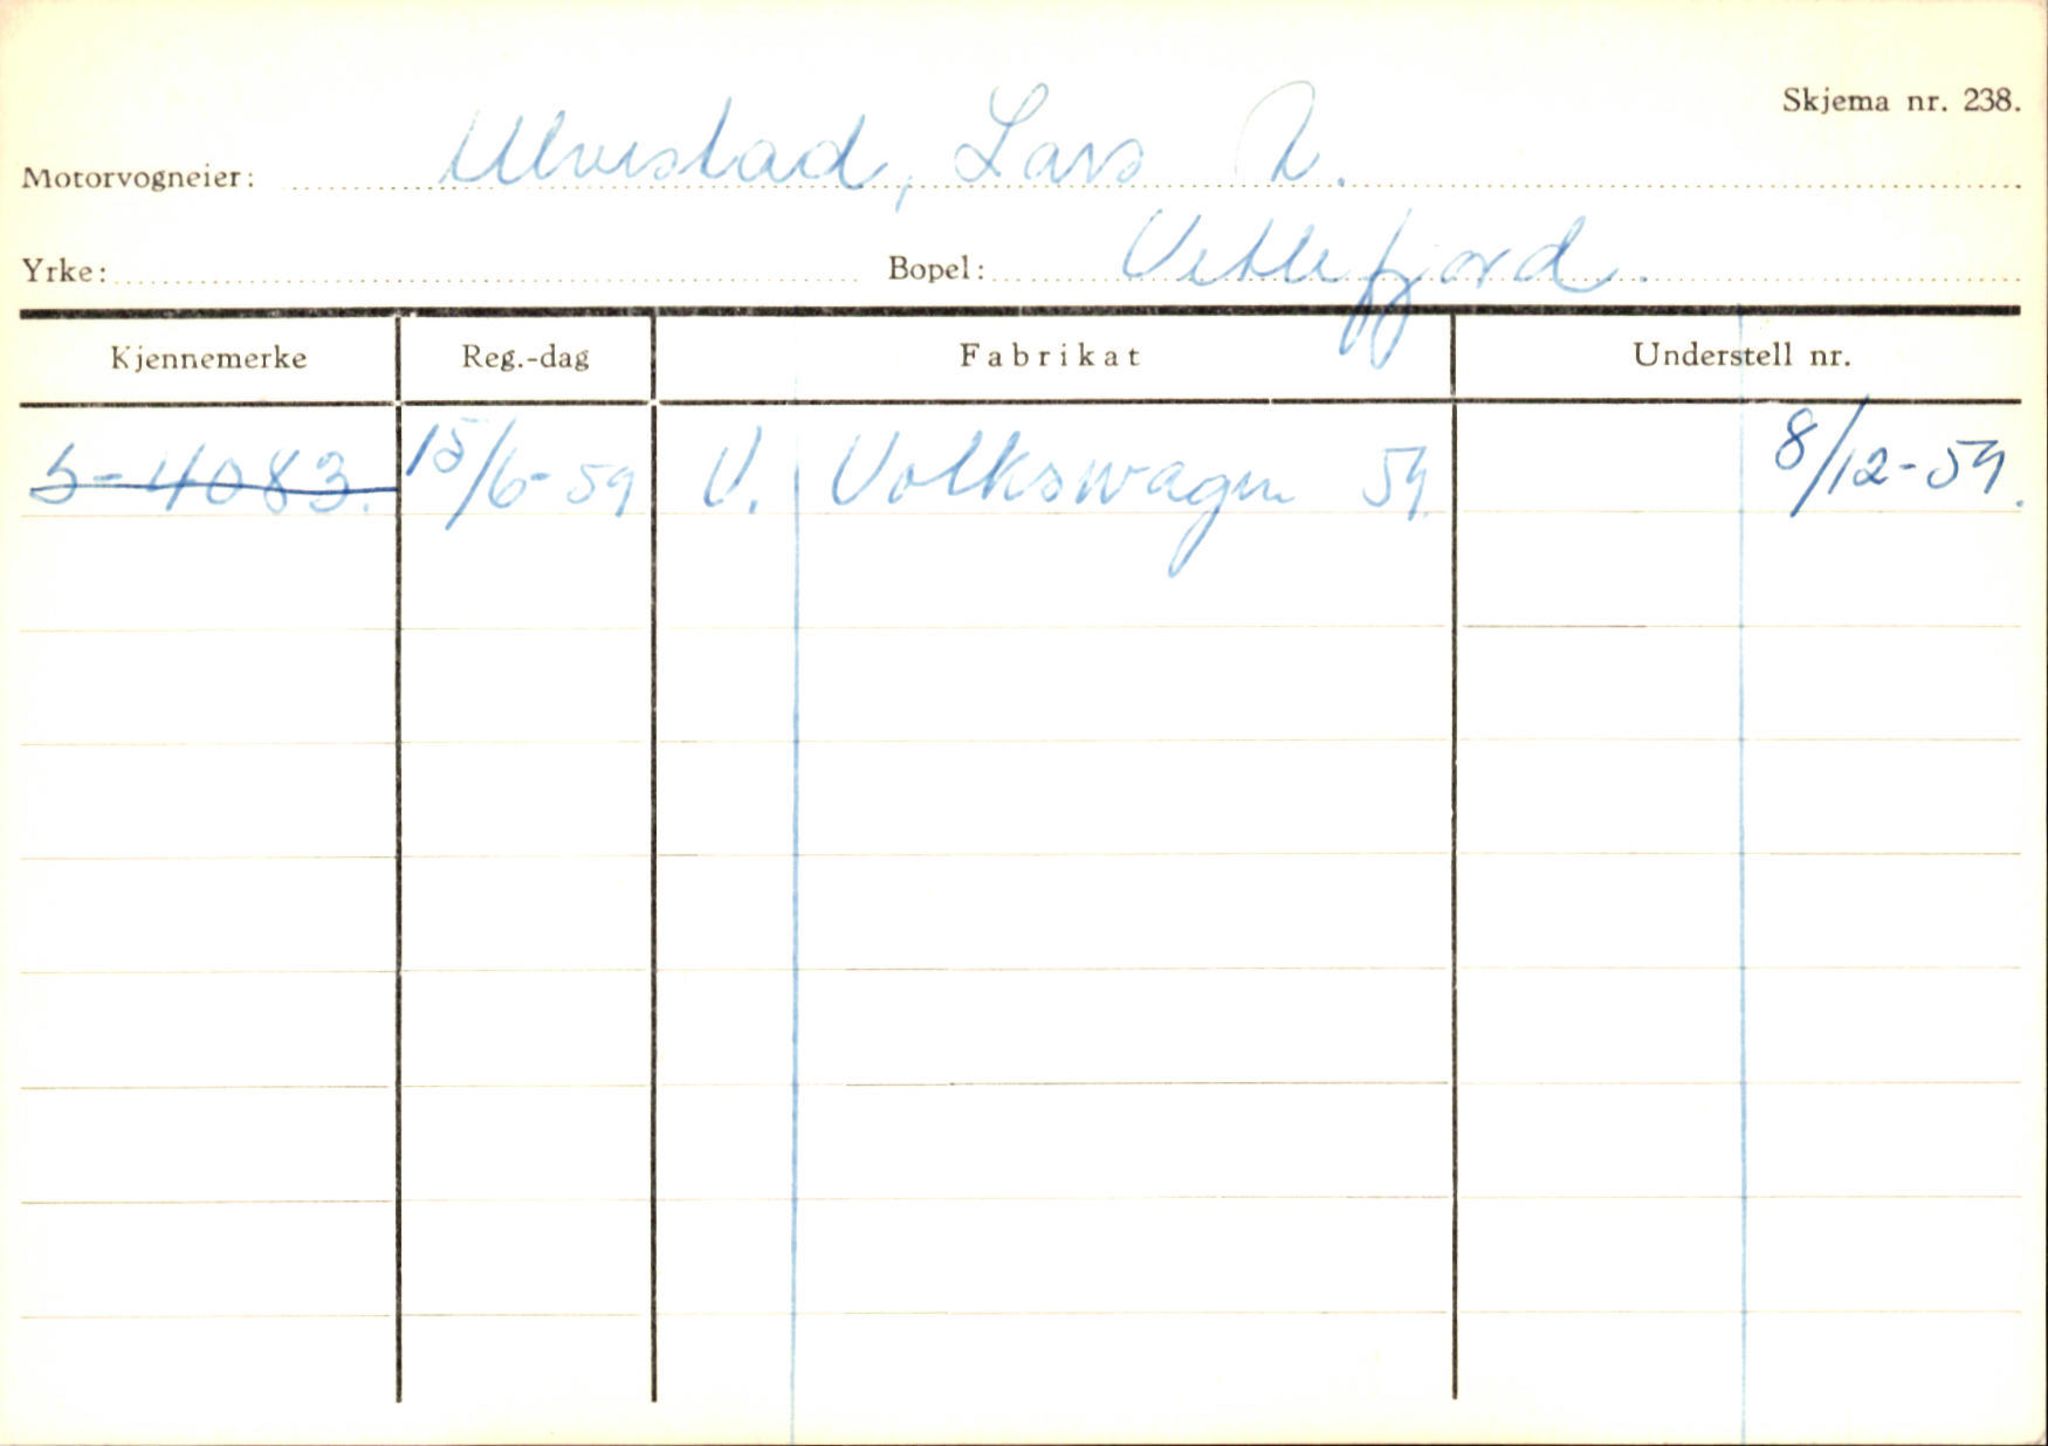 Skjema nr. 238.
Motorvogneier: Ulvestad, Lars N.
Yrke: Bopel: Vetlefjord.
Kjennemerke Reg.-dag Fabrikat Understell nr.
S-4083. 15/6-59 V. Volkswagen 59. 8/12-59.